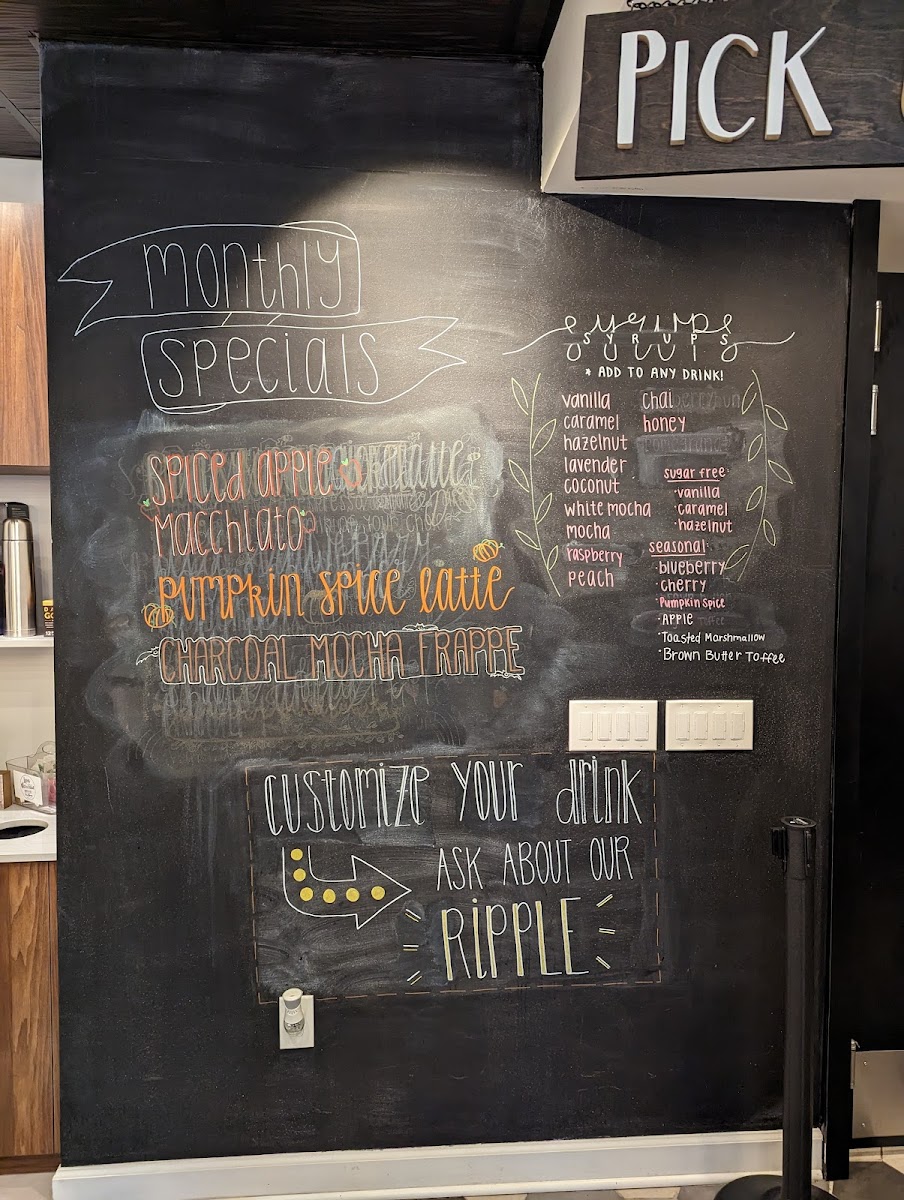 PICK
monthly
specials
spiced apple
macchiato
pumpkin spice latte
CHARCOAL MOCHA FRAPPE
SYRUPS
* ADD TO ANY DRINK!
vanilla
caramel
hazelnut
lavender
coconut
white mocha
mocha
raspberry
peach
chai
honey
sugar free
·vanilla
·caramel
·hazelnut
seasonal
·blueberry
·cherry
·Pumpkin Spice
·Apple
*Toasted Marshmallow
*Brown Butter Toffee
customize your drink
ASK ABOUT OUR
RIPPLE